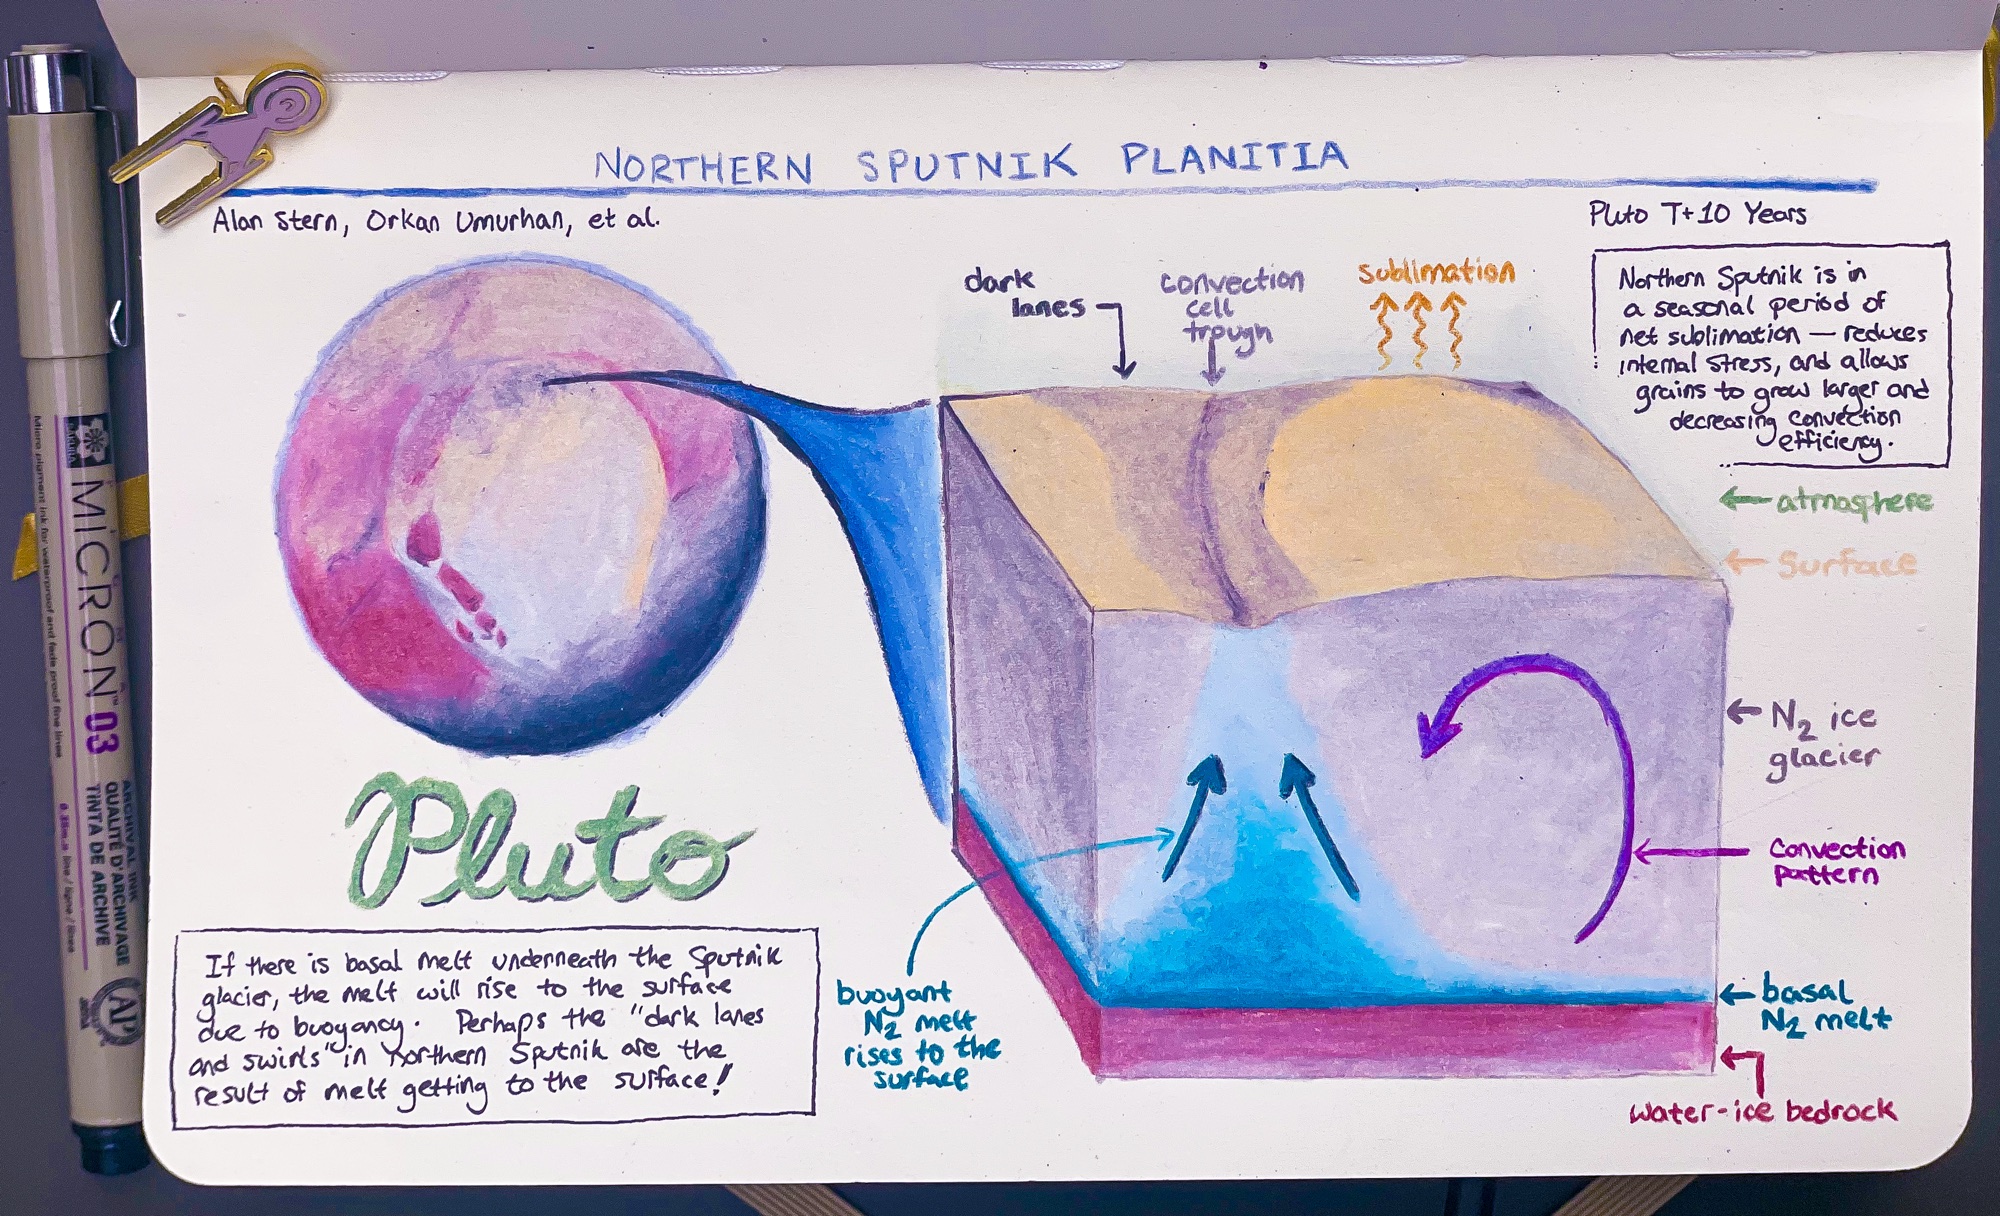 NORTHERN SPUTNIK PLANITIA
Alan Stern, Orkan Umurhan, et al.
Pluto T+10 Years
dark
lanes
convection
cell
trough
sublimation
Northern Sputnik is in
a seasonal period of
net sublimation — reduces
internal stress, and allows
grains to grow larger and
decreasing convection
efficiency.
atmosphere
Surface
N2 ice
glacier
Convection
pattern
basal
N2 melt
water-ice bedrock
buoyant
N2 melt
rises to the
surface
Pluto
If there is basal melt underneath the Sputnik
glacier, the melt will rise to the surface
due to buoyancy. Perhaps the "dark lanes
and swirls" in Northern Sputnik are the
result of melt getting to the surface!
MICRON 03
ARCHIVAL INK
QUALITÉ D'ARCHIVAGE
TINTA DE ARCHIVE
Micro pigment ink for waterproof and fade proof fine lines
line / ligne / línea
AP